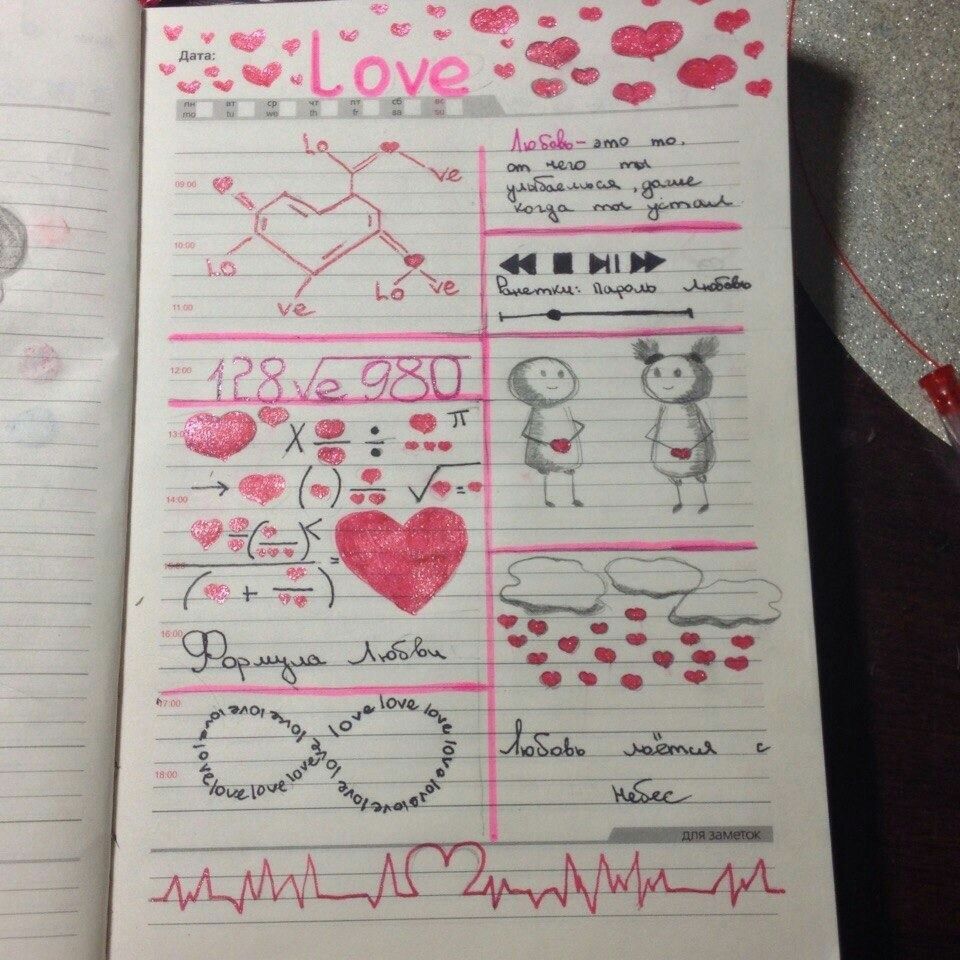 Дата:
Love
пн вт ср чт пт сб вс
mo tu we th fr sa su
09:00
10:00
11:00
Lo
ve
Lo
ve
Lo ve
Любовь - это то,
от чего ты
улыбаешься, даже
когда ты устал.
Ранетки: Пароль Любовь
12:00
128√e 980
13:00
X ÷ π
14:00
→ ( ) √ =
= ( ) <
( + ) =
16:00
Формула Любви
17:00
18:00
love love love love love love love love love love love
Любовь льётся с
небес
для заметок